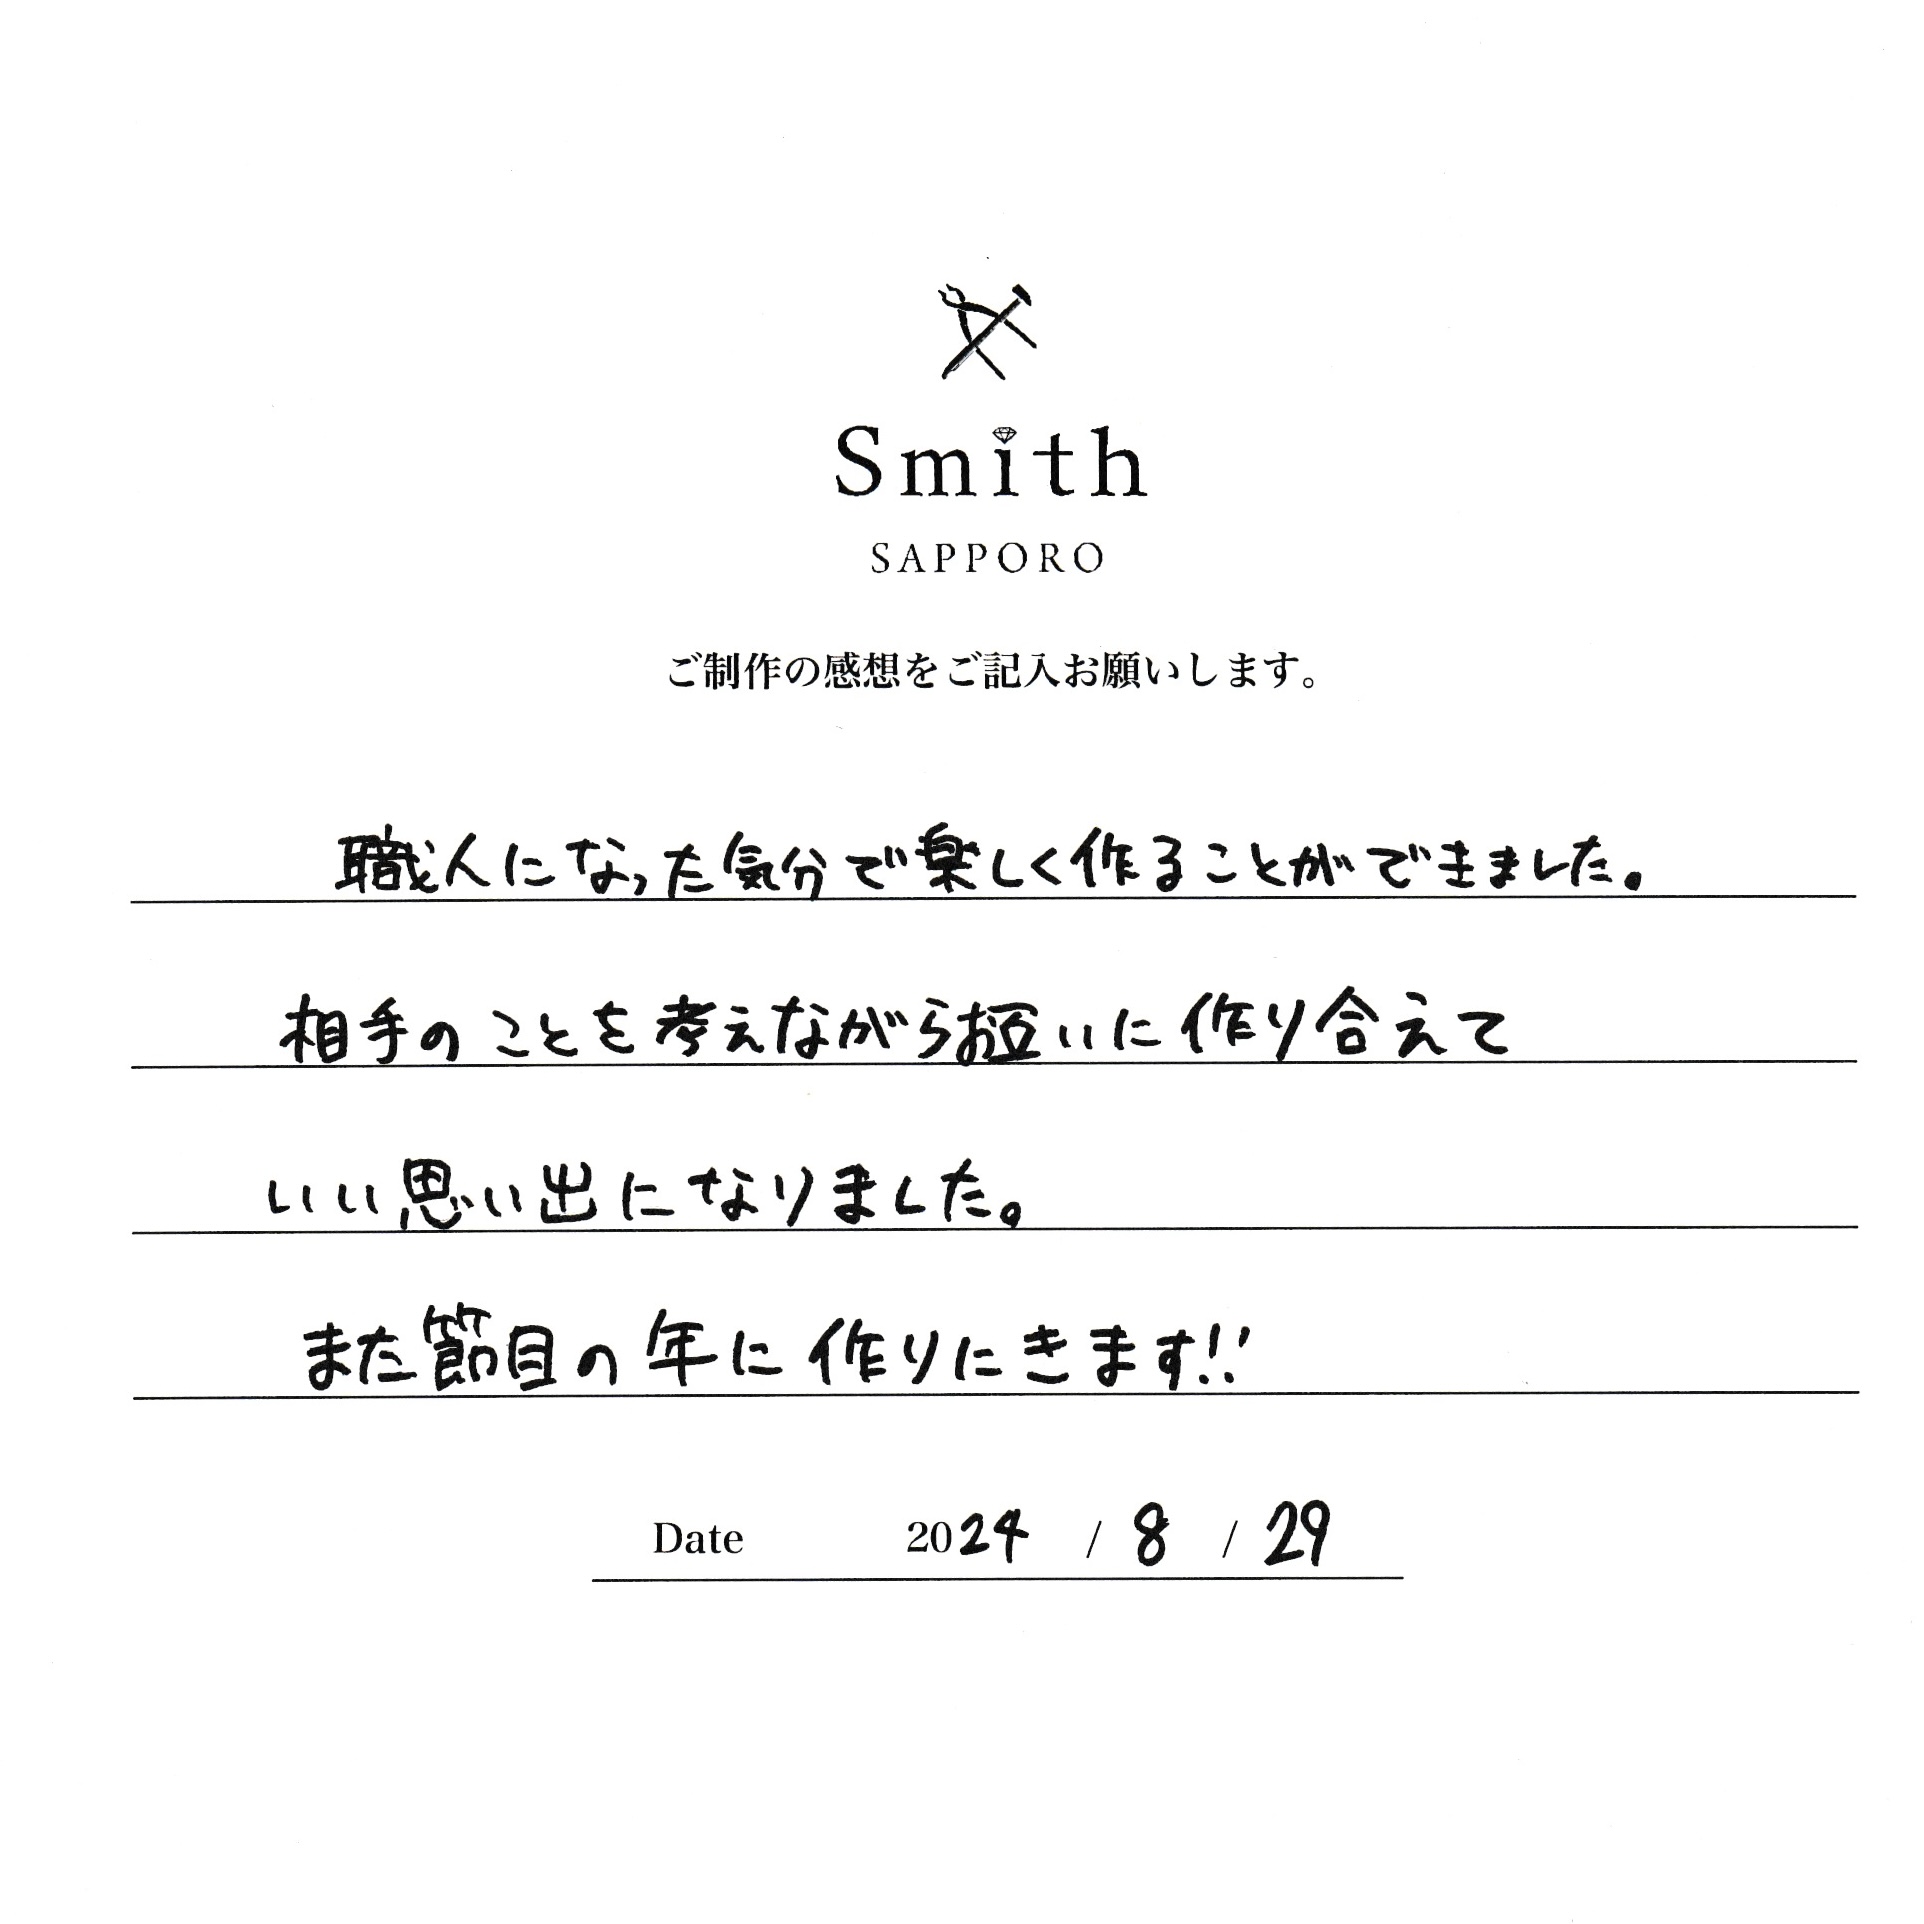 Smith
SAPPORO
ご制作の感想をご記入お願いします。
職人になった気分で楽しく作ることができました。
相手のことを考えながらお互いに作り合えて
いい思い出になりました。
また節目の年に作りにきます!!
Date 2024 / 8 / 29